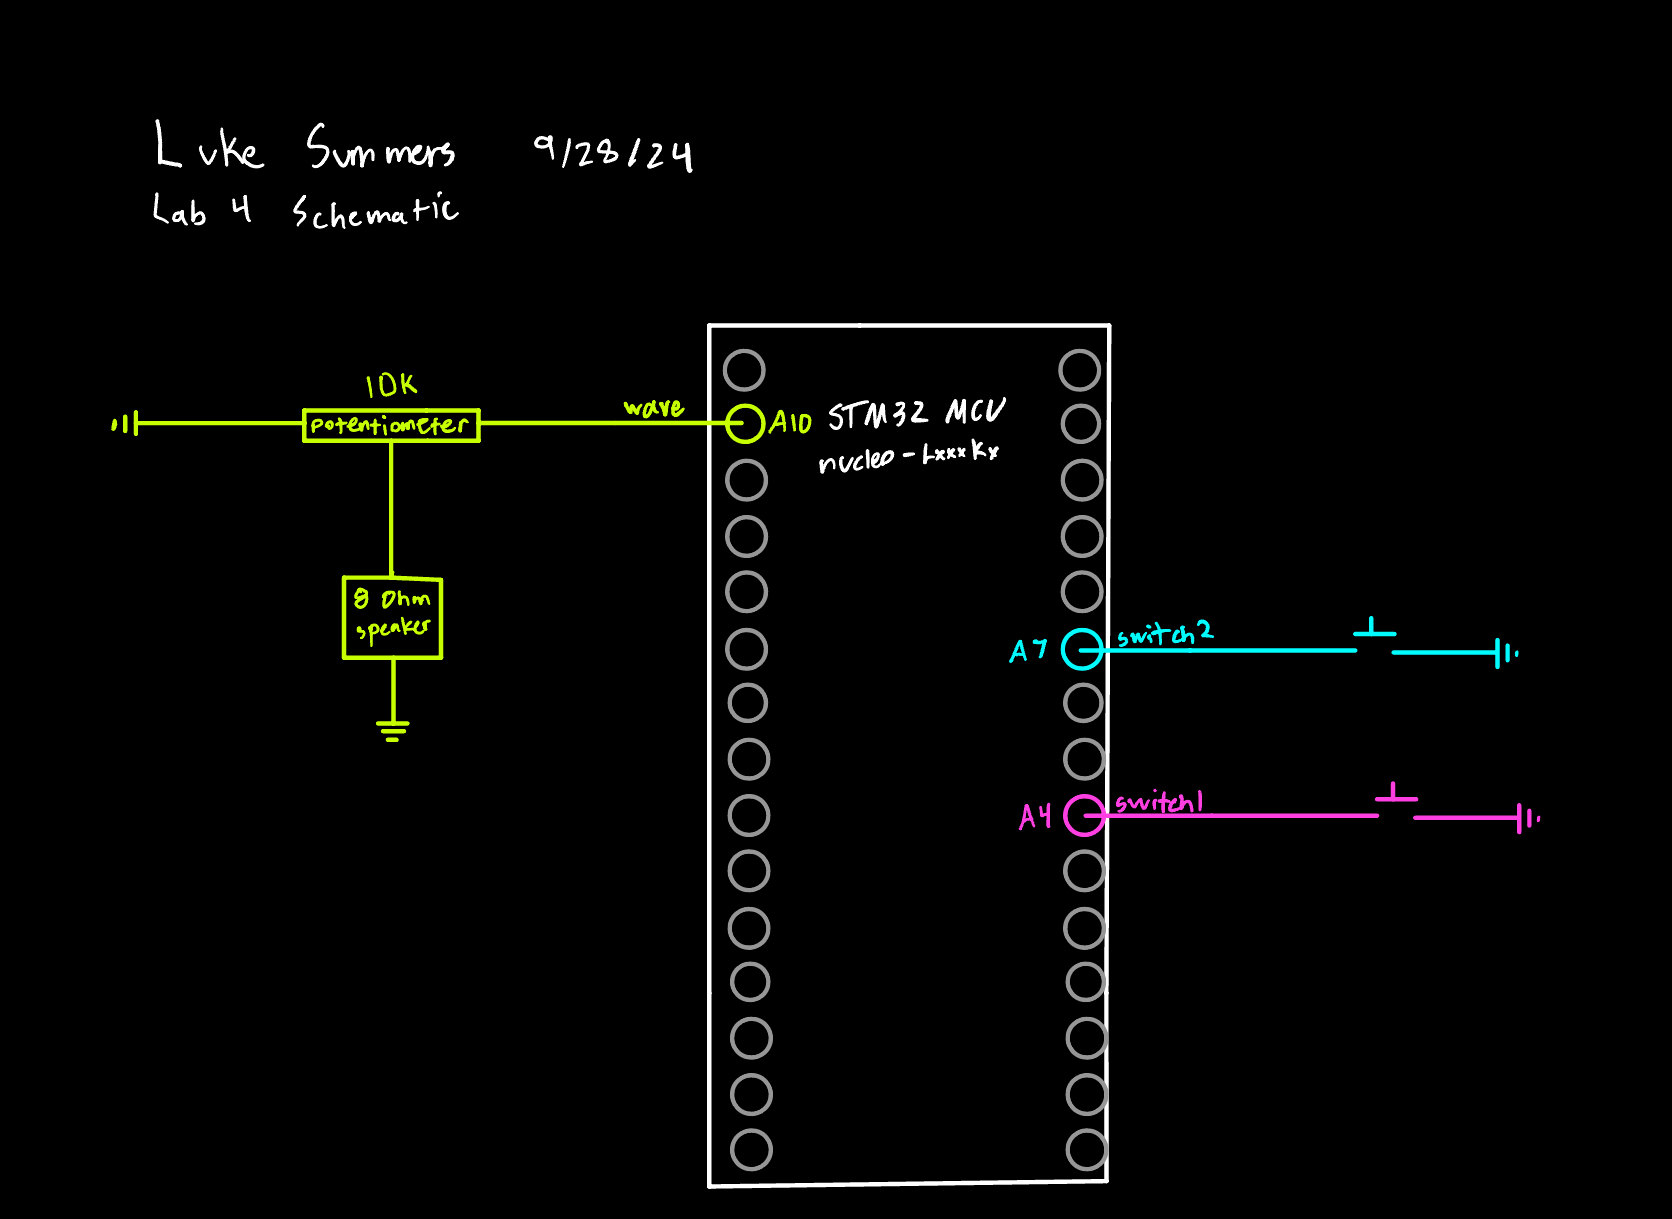 Luke Summers 9/28/24
Lab 4 Schematic
10K
potentiometer
wave
A10
STM32 MCU
nucleo-LxxxKx
8 Ohm
speaker
A7
switch2
A4
switch1